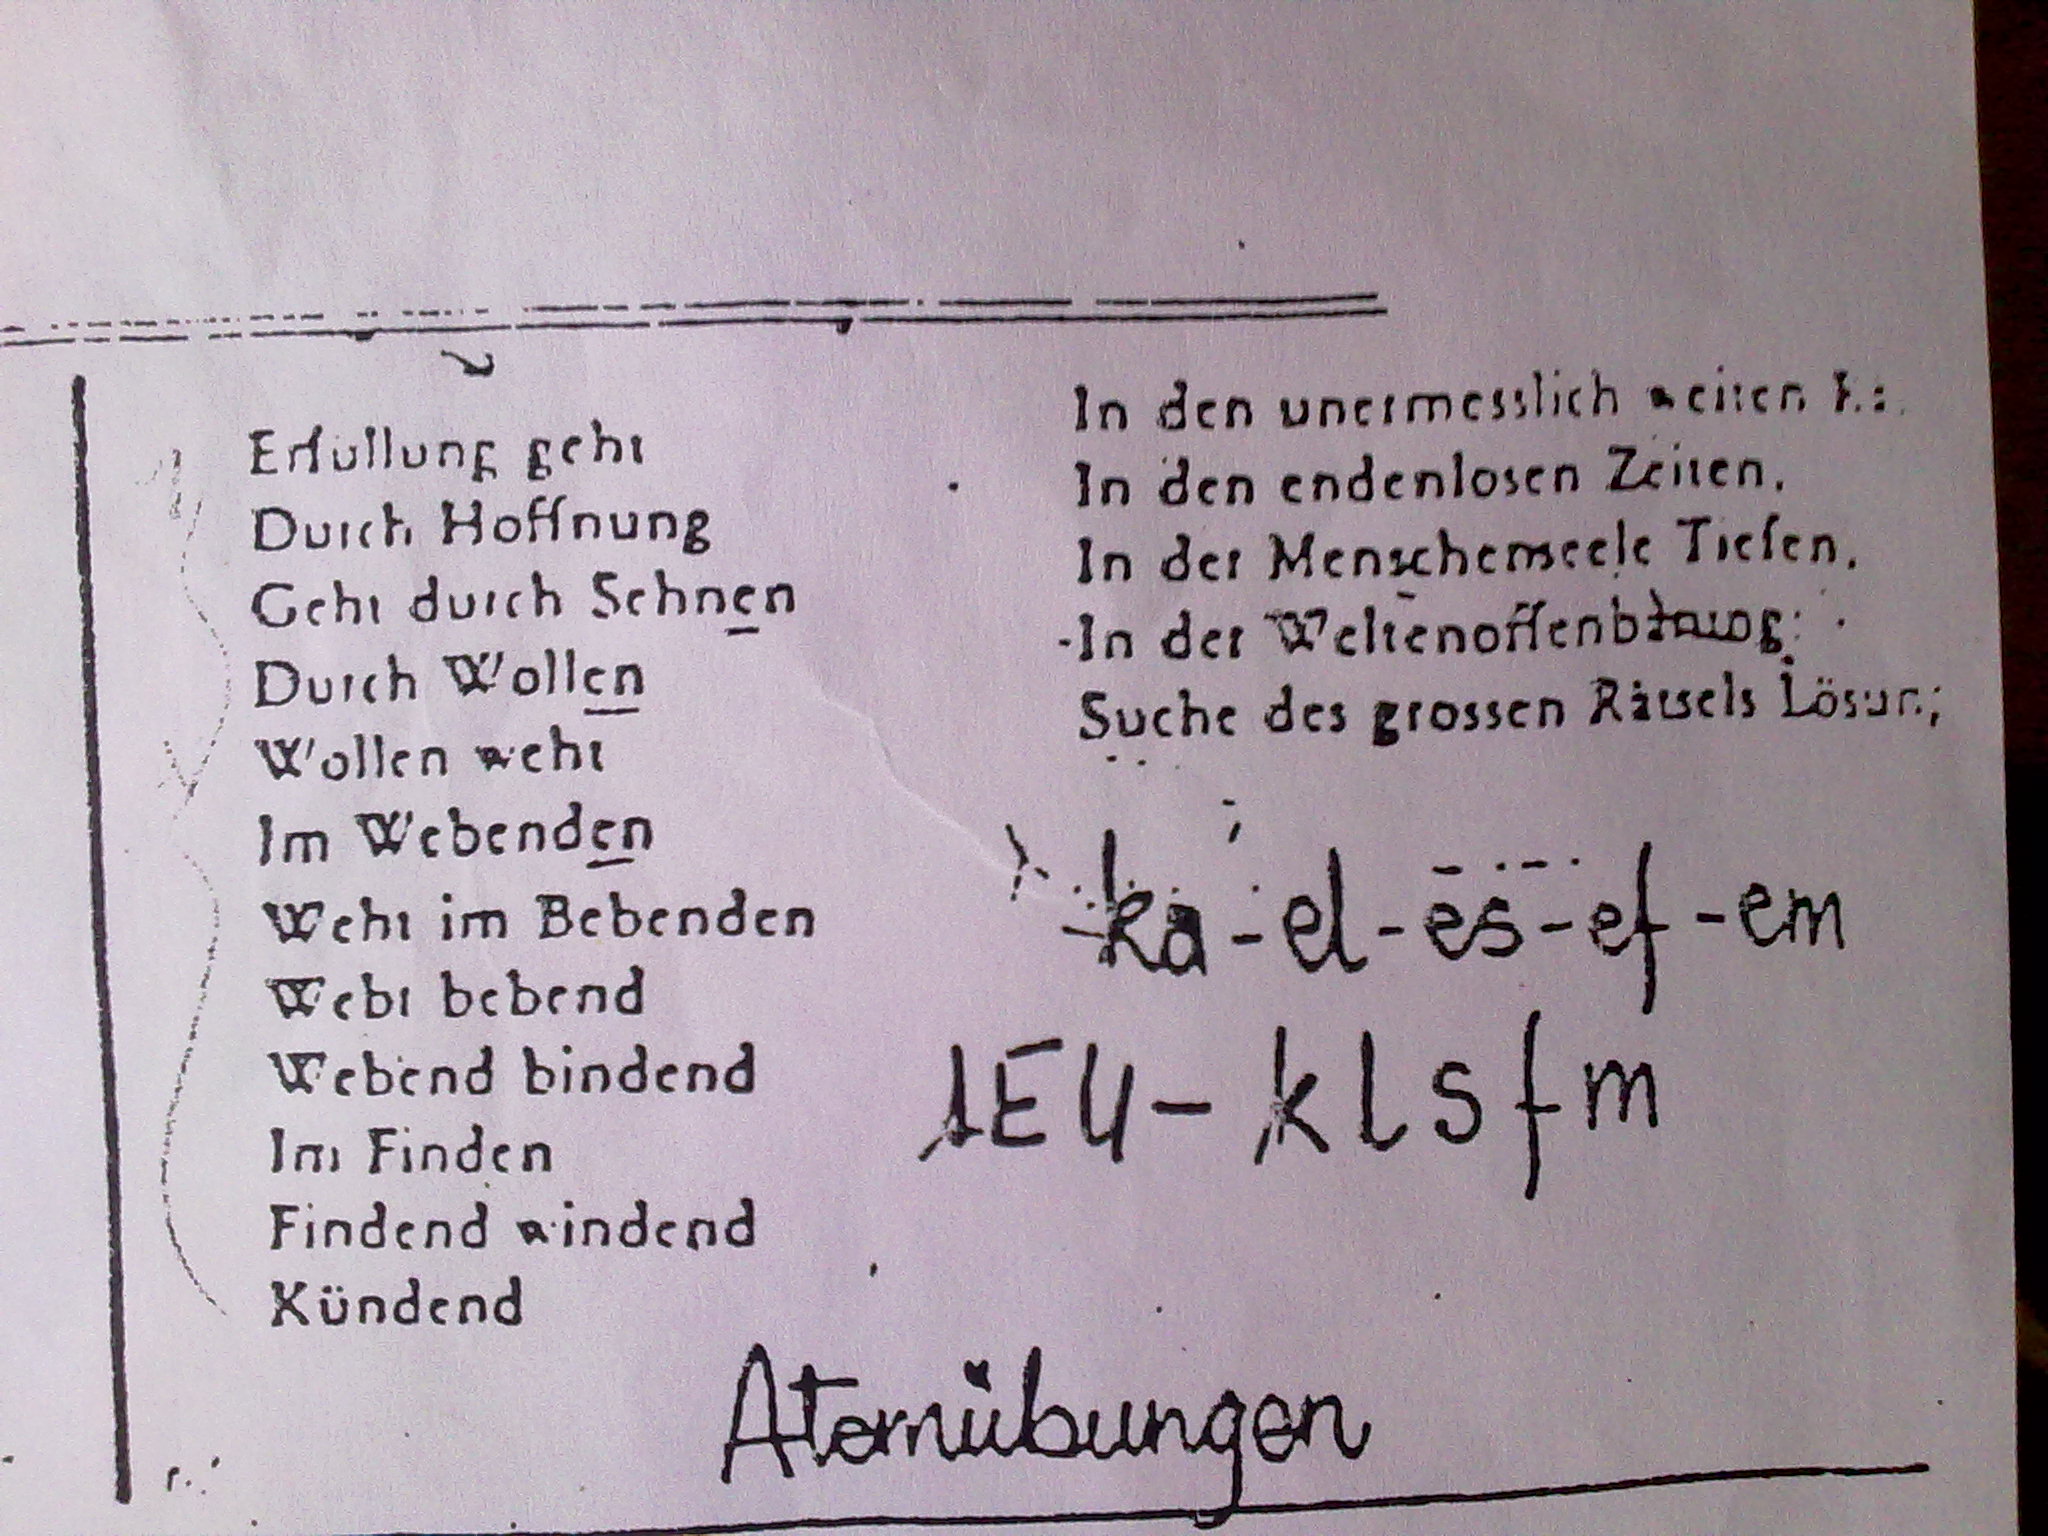 Erfüllung geht
Durch Hoffnung
Geht durch Sehnen
Durch Wollen
Wollen weht
Im Webenden
Weht im Bebenden
Webt bebend
Webend bindend
Im Finden
Findend windend
Kündend
In den unermesslich weiten
In den endenlosen Zeiten,
In der Menschenseele Tiefen,
In der Weltenoffenbarung:
Suche des grossen Rätsels Lösung
ka - el - es - ef - em
IEU - k l s f m
Atemübungen